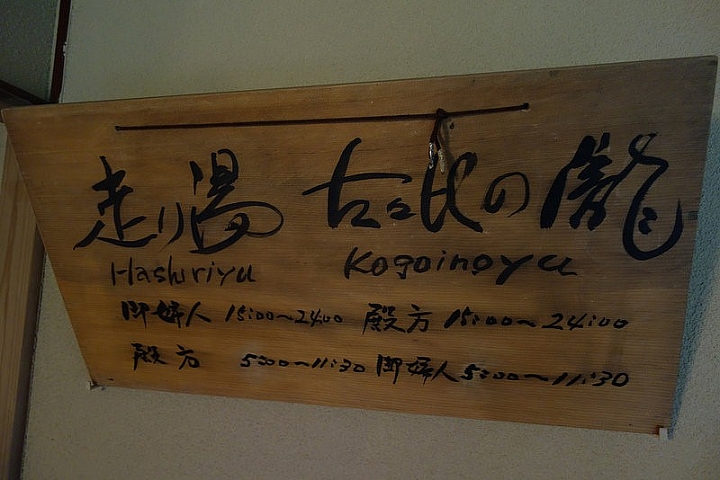 走り湯 古々比の瀧
Hashiriyu Kogoinoyu
御婦人 15:00〜24:00 殿方 15:00〜24:00
殿方 5:00〜11:30 御婦人 5:00〜11:30